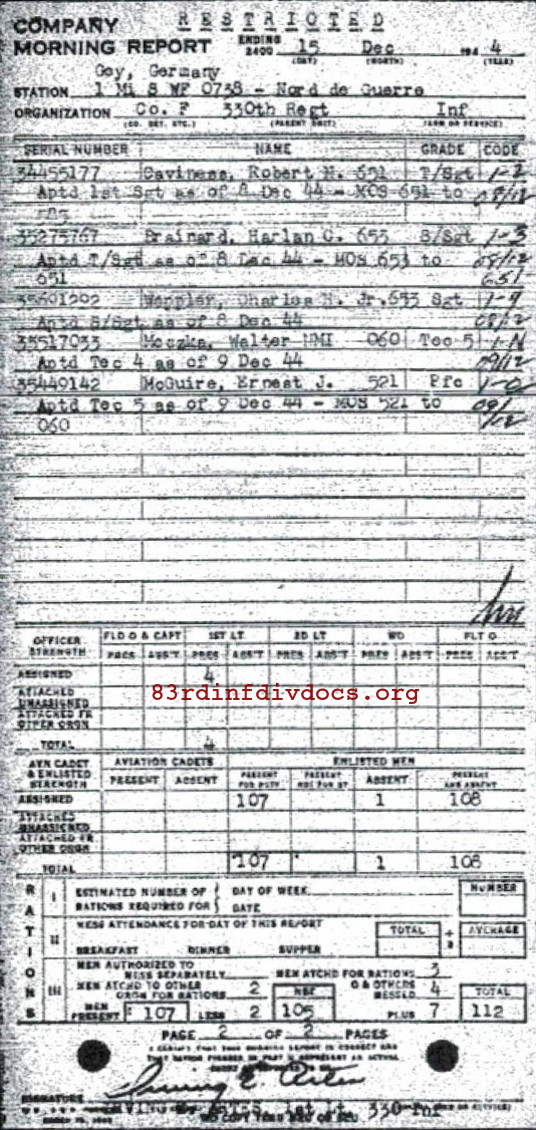 RESTRICTED
COMPANY
MORNING REPORT ENDING 2400 15 Dec 194 4
(DAY) (MONTH) (YEAR)
Gey, Germany
STATION 1 Mi S WF 0738 - Nord de Guerre
ORGANIZATION Co. F 330th Regt Inf
(CO. DET. ETC.) (PARENT UNIT) (ARM OR SERVICE)
SERIAL NUMBER NAME GRADE CODE
34455177 Caviness, Robert H. 651 T/Sgt 1-2
Aptd 1st Sgt as of 8 Dec 44 - MOS 651 to 08/12
585
35275767 Brainard, Harlan C. 653 S/Sgt 1-3
Aptd T/Sgt as of 8 Dec 44 - MOS 653 to 08/12
651 651
35601202 Wappler, Charles H. Jr. 653 Sgt 1-4
Aptd S/Sgt as of 8 Dec 44 08/12
35517033 Moczka, Walter NMI 060 Tec 5 1-N
Aptd Tec 4 as of 9 Dec 44 09/12
35449142 McGuire, Ernest J. 521 Pfc 1-0
Aptd Tec 5 as of 9 Dec 44 - MOS 521 to 09/12
060
OFFICER STRENGTH FLD O & CAPT 1ST LT 2D LT WO FLT O
PRES ABS'T PRES ABS'T PRES ABS'T PRES ABS'T PRES ABS'T
ASSIGNED 4
83rdinfdivdocs.org
ATTACHED UNASSIGNED
ATTACHED FR OTHER ORGN
TOTAL 4
AVN CADET & ENLISTED STRENGTH AVIATION CADETS ENLISTED MEN
PRESENT ABSENT PRESENT FOR DUTY PRESENT NOT FOR DY ABSENT PRESENT AND ABSENT
ASSIGNED 107 1 108
ATTACHED UNASSIGNED
ATTACHED FR OTHER ORGN
TOTAL 107 1 108
RATIONS
I ESTIMATED NUMBER OF RATIONS REQUIRED FOR DAY OF WEEK DATE NUMBER
II MESS ATTENDANCE FOR DAY OF THIS REPORT TOTAL ÷ 3 AVERAGE
BREAKFAST DINNER SUPPER
III MEN AUTHORIZED TO MESS SEPARATELY MEN ATCHD FOR RATIONS 3
MEN ATCHD TO OTHER ORGN FOR RATIONS 2 NET O & OTHERS MESSED 4 TOTAL
MEN PRESENT 107 LESS 2 105 PLUS 7 112
PAGE 2 OF 2 PAGES
I CERTIFY THAT THIS MORNING REPORT IS CORRECT AND
SIGNATURE
1st Lt 330 Inf